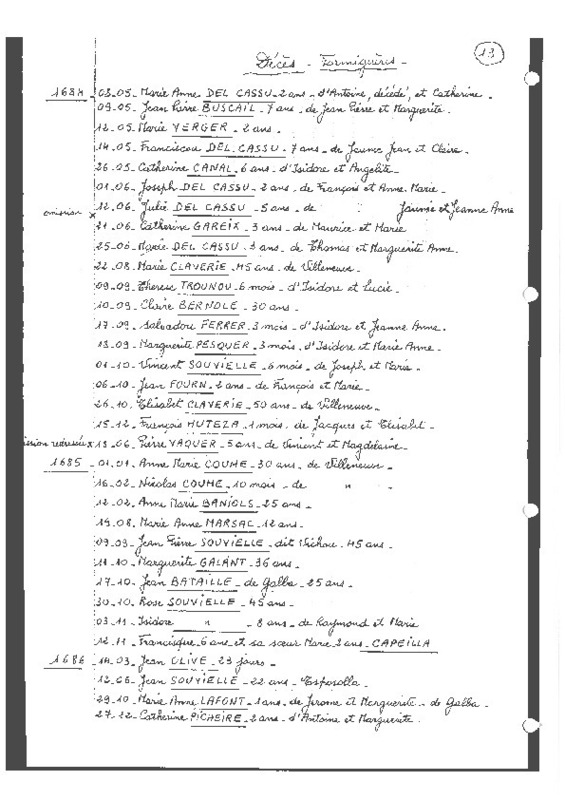 13
Décès - Formiguères -
1684 - 03.05. Marie Anne DEL CASSU - 2 ans - d'Antoine, décédé, et Catherine -
09.05. Jean Pierre BUSCAIL - 7 ans - de Jean Pierre et Marguerite -
12.05. Marie VERGER - 2 ans -
14.05. Franciscou DEL CASSU - 7 ans - de Jaume Jean et Claire -
26.05. Catherine CANAL - 6 ans - d'Isidore et Angelite -
01.06. Joseph DEL CASSU - 2 ans - de François et Anne Marie -
omission x 12.06. Julie DEL CASSU - 5 ans - de Jaume et Jeanne Anne
21.06. Catherine GAREIX - 3 ans - de Maurice et Marie
25.06. Marie DEL CASSU - 3 ans - de Thomas et Marguerite Anne -
22.08. Marie CLAVERIE - 45 ans - de Villeneuve -
09.09. Therese TROUNOU - 6 mois - d'Isidore et Lucie -
10.09. Claire BERNOLE - 30 ans -
17.09. Salvadou FERRER - 3 mois - d'Isidore et Jeanne Anne -
19.09. Marguerite PESQUER - 3 mois - d'Isidore et Marie Anne -
01.10. Vincent SOUVIELLE - 6 mois - de Joseph et Marie -
06.10. Jean FOURN - 2 ans - de François et Marie -
26.10. Elisabet CLAVERIE - 50 ans - de Villeneuve -
15.12. François HUTEZA - 1 mois - de Jacques et Elisabet -
x 13.06. Pierre VAQUER - 5 ans - de Vincent et Magdelaine -
1685 - 01.01. Anne Marie COUME - 30 ans - de Villeneuve -
16.02. Nicolas COUME - 10 mois - de " " -
12.02. Anne Marie BANIOLS - 25 ans -
19.08. Marie Anne MARSAC - 12 ans -
09.09. Jean Pierre SOUVIELLE - dit Vichou - 45 ans -
11.10. Marguerite GALANT - 36 ans -
17.10. Jean BATAILLE - de Galba - 25 ans -
30.10. Rose SOUVIELLE - 45 ans -
03.11. Isidore " - 8 ans - de Raymond et Marie
12.11. Francisque 6 ans et sa sœur Marie 3 ans - CAPEILLA
1686 - 14.03. Jean OLIVE - 23 jours -
12.06. Jean SOUVIELLE - 22 ans - Esposolla -
29.10. Marie Anne LAFONT - 1 ans - de Jerome et Marguerite - de Galba -
27.12. Catherine PICHEIRE - 2 ans - d'Antoine et Marguerite -